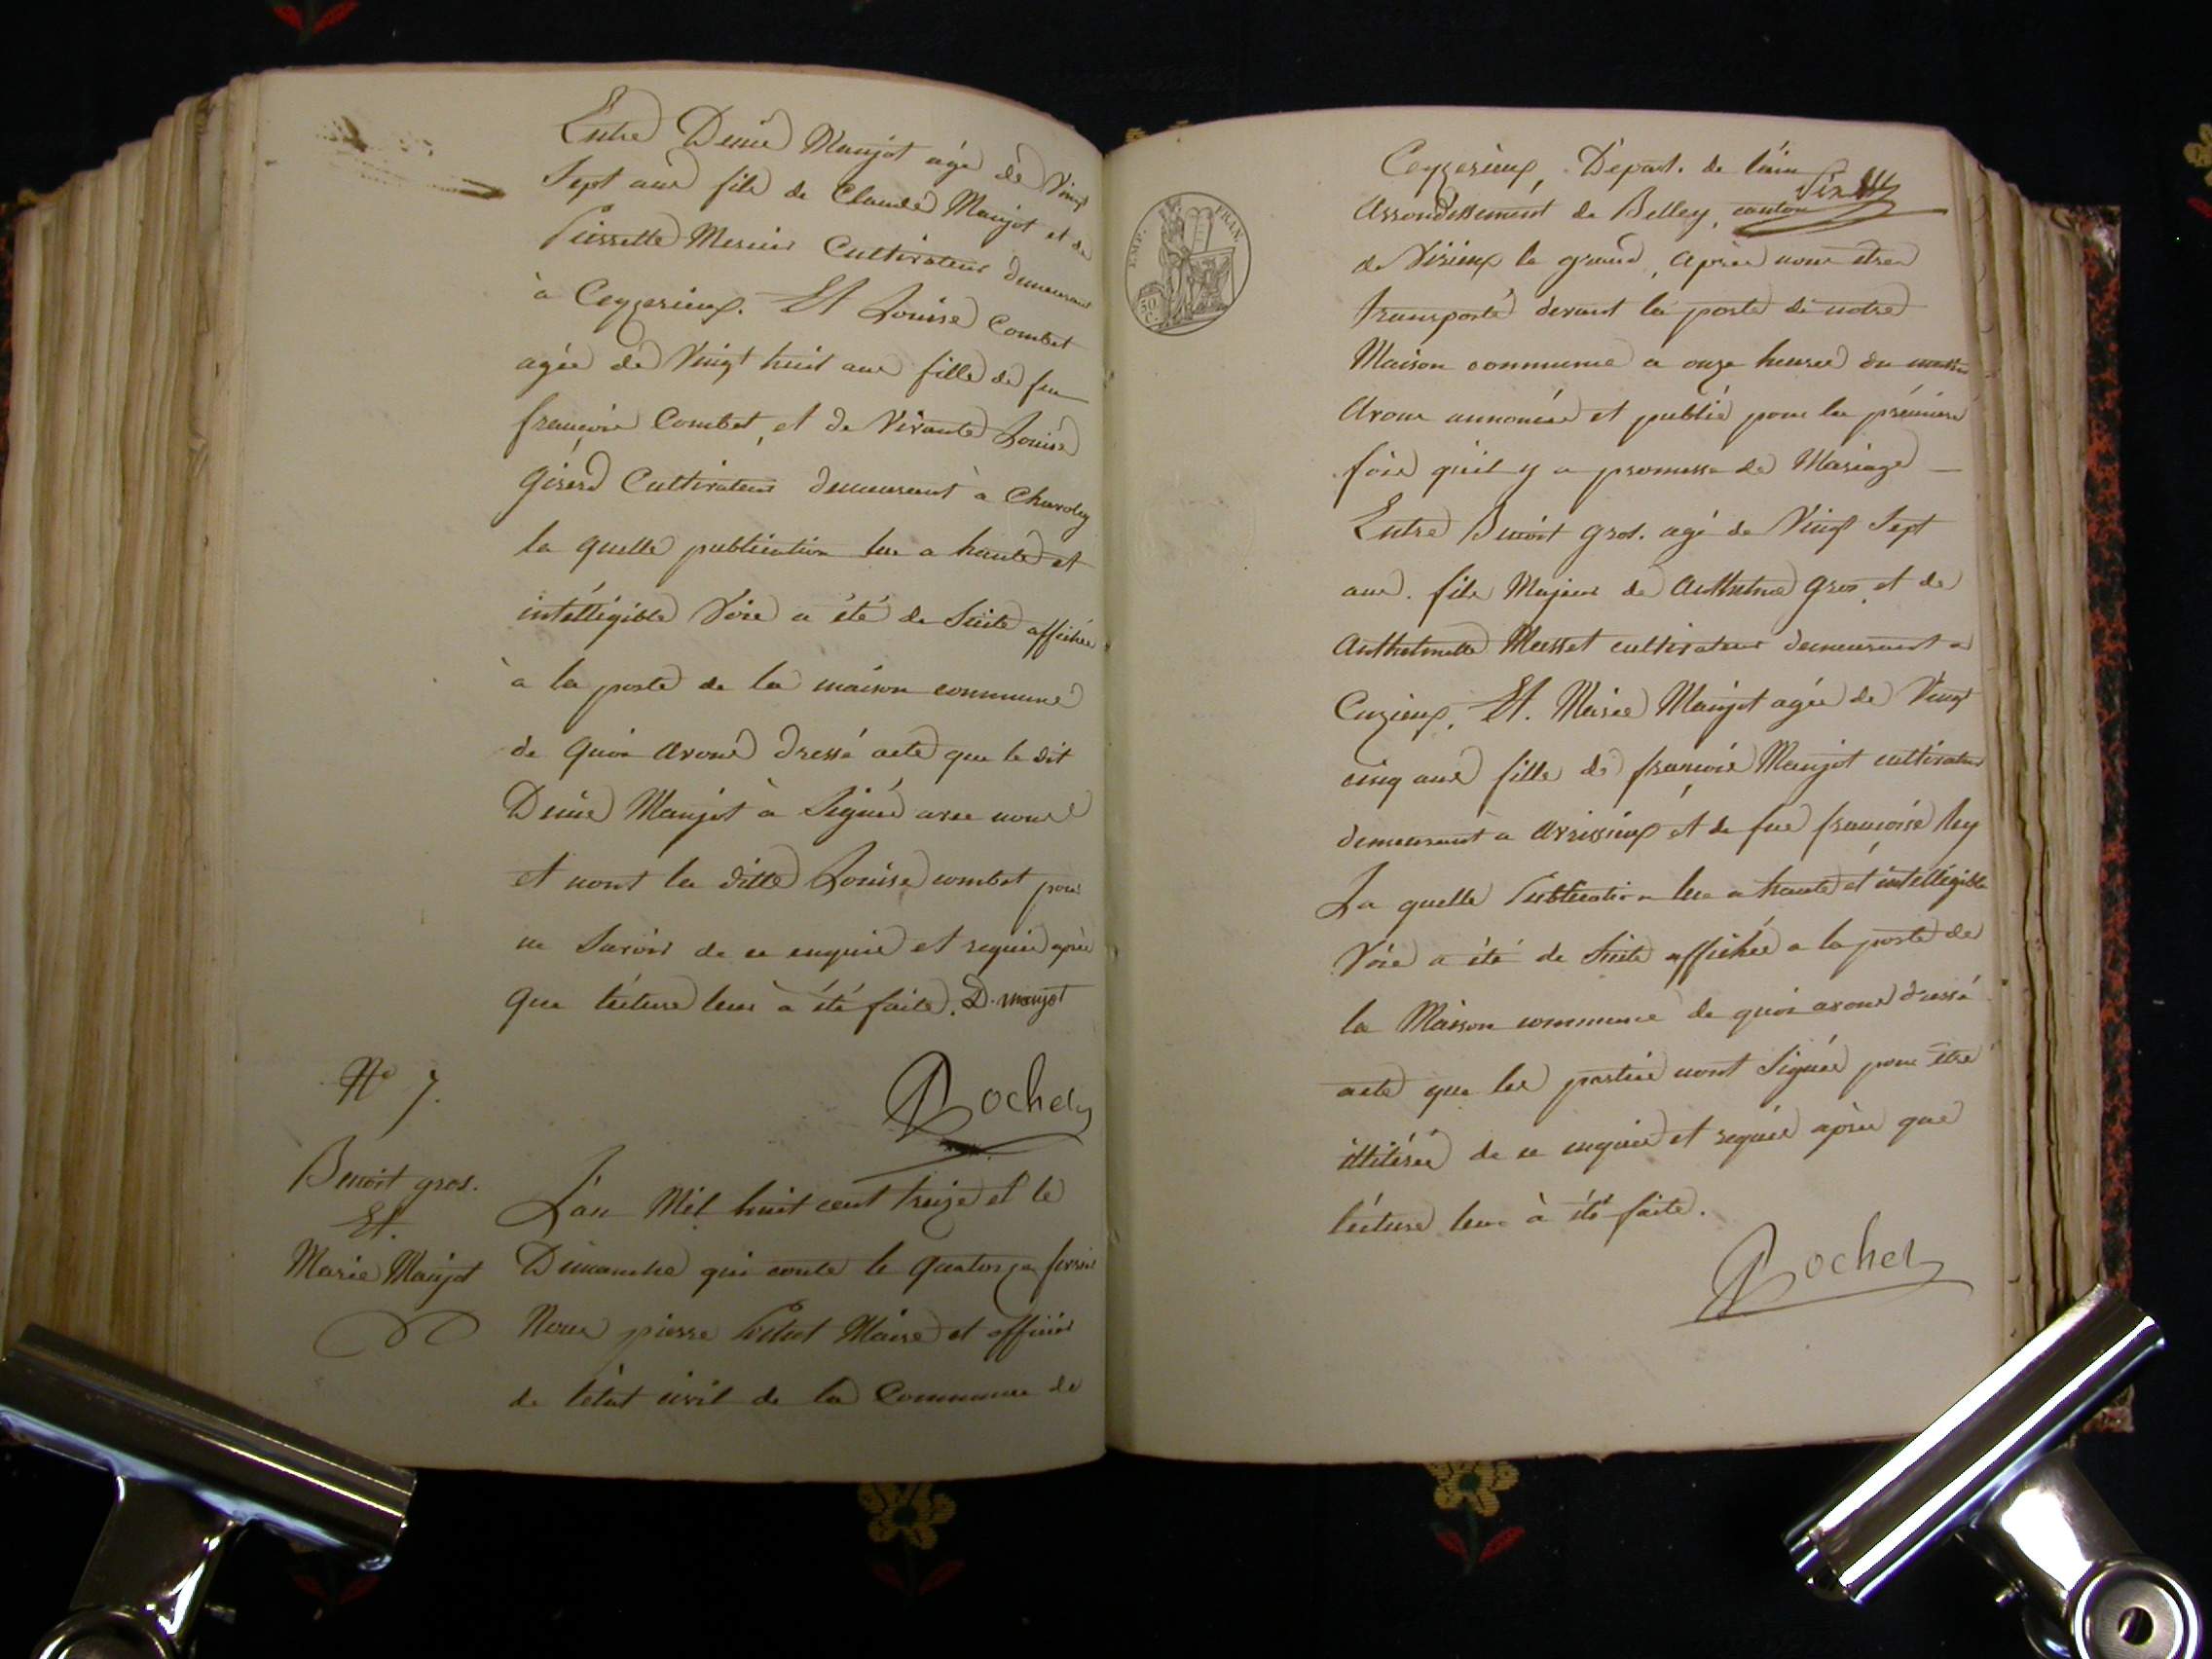 Entre Denis Maujot agé de Vingt
Sept ans fils de Claude Maujot et de
Pierrette Mercier Cultivateur demeurant
à Ceyzerieux. Et Louise Combet
agée de Vingt huit ans fille de feu
françois Combet, et de Vivante Louise
Girerd Cultivateur demeurant à Chavoley
la quelle publication lue a haute et
intélligible Voix a été de Suite affichée
à la porte de la maison commune
de quoi avons dressé acte que le dit
Denis Maujot à Signé avec nous
et nont la ditte Louise combet pour
ne Savoir de ce enquis et requis après
que lécture leur à été faite. D. maujot
Rochet
N° 7.
Benoit gros.
Et.
Marie Maujot
L'an Mil huit cent treize et le
Dimanche qui conte le quatorze fevrier
Nous pierre Rochet Maire et officier
de létat civil de la Commune de
EMP. FRAN.
50 C.
Ceyzerieux, Départ. de l'ain
Arrondissement de Belley, canton
de Virieux le grand, après nous etres
transporté devant la porte de notre
Maison commune a onze heures du matin
Avons annoncés et publié pour la prémiere
fois qu'il y a promesse de Mariage
Entre Benoit gros. agé de Vingt Sept
ans. fils Majeur de Anthelme gros, et de
Anthelmette Musset cultivateur demeurant a
Cuzieux, Et. Marie Maujot agée de Vingt
cinq ans fille de françois Maujot cultivateur
demeurant a Avrissieux et de fue françoise Rey
La quelle Publication lue a haute et intélligible
Voix a été de Suite affichée a la porte de
la Maison commune de quoi avons dressé
acte que les parties nont Signée pour être
illitérés de ce enquis et requis après que
lécture leur à été faite.
Rochet